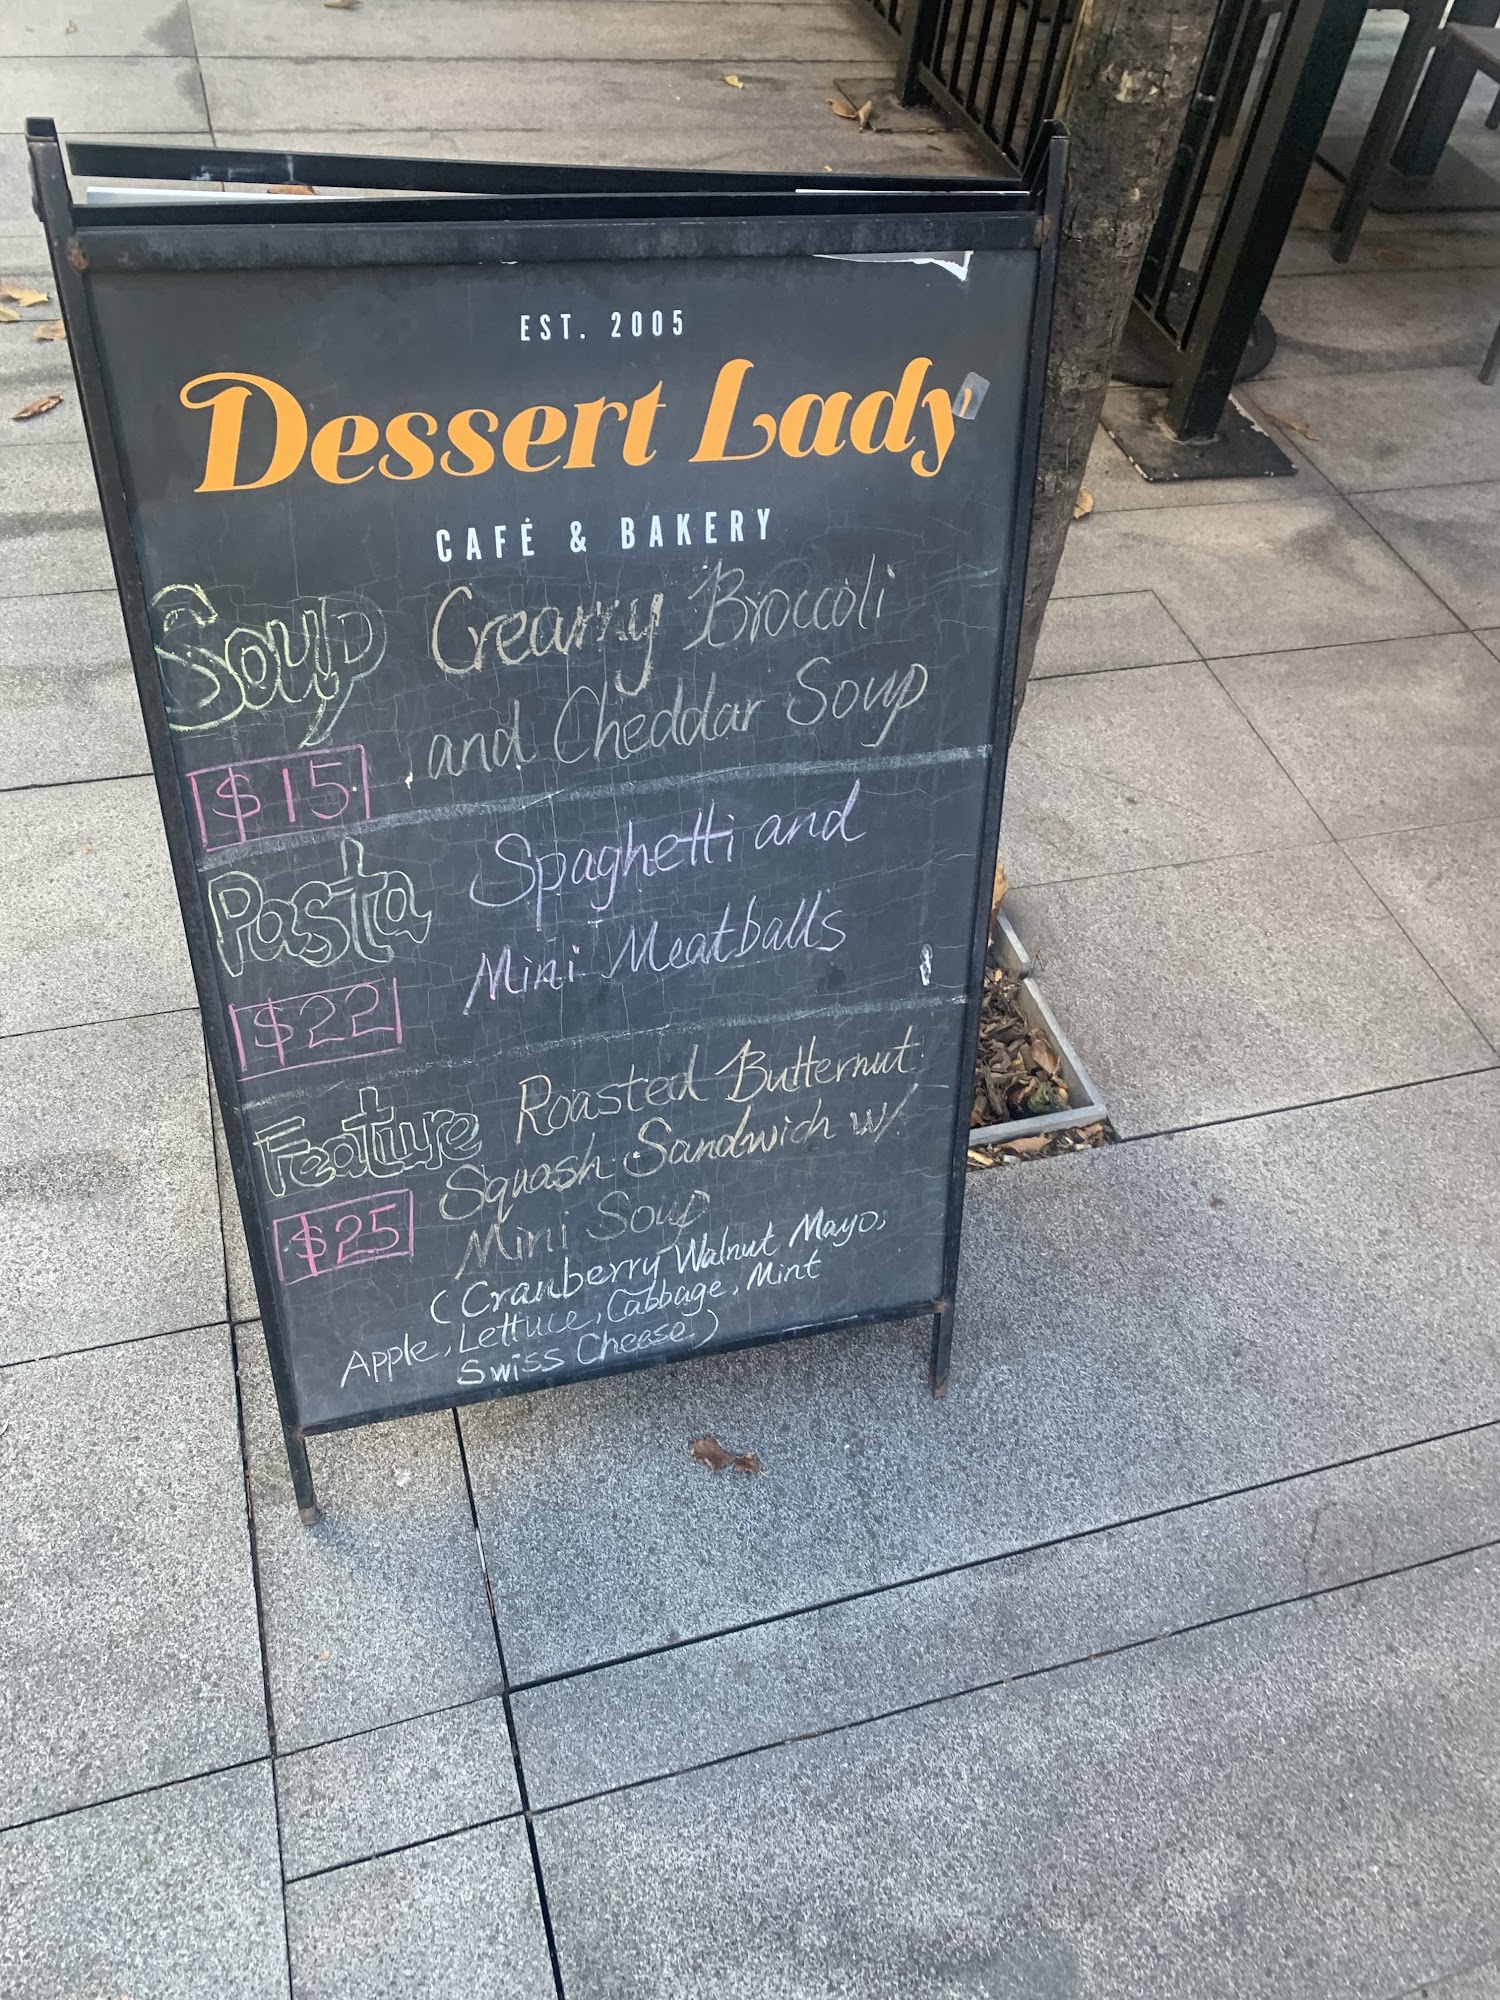 EST. 2005
Dessert Lady
CAFÉ & BAKERY
Soup
Creamy Broccoli
and Cheddar Soup
$15
Pasta
Spaghetti and
Mini Meatballs
$22
Feature
Roasted Butternut
Squash Sandwich w/
Mini Soup
$25
(Cranberry Walnut Mayo,
Apple, Lettuce, Cabbage, Mint
Swiss Cheese)